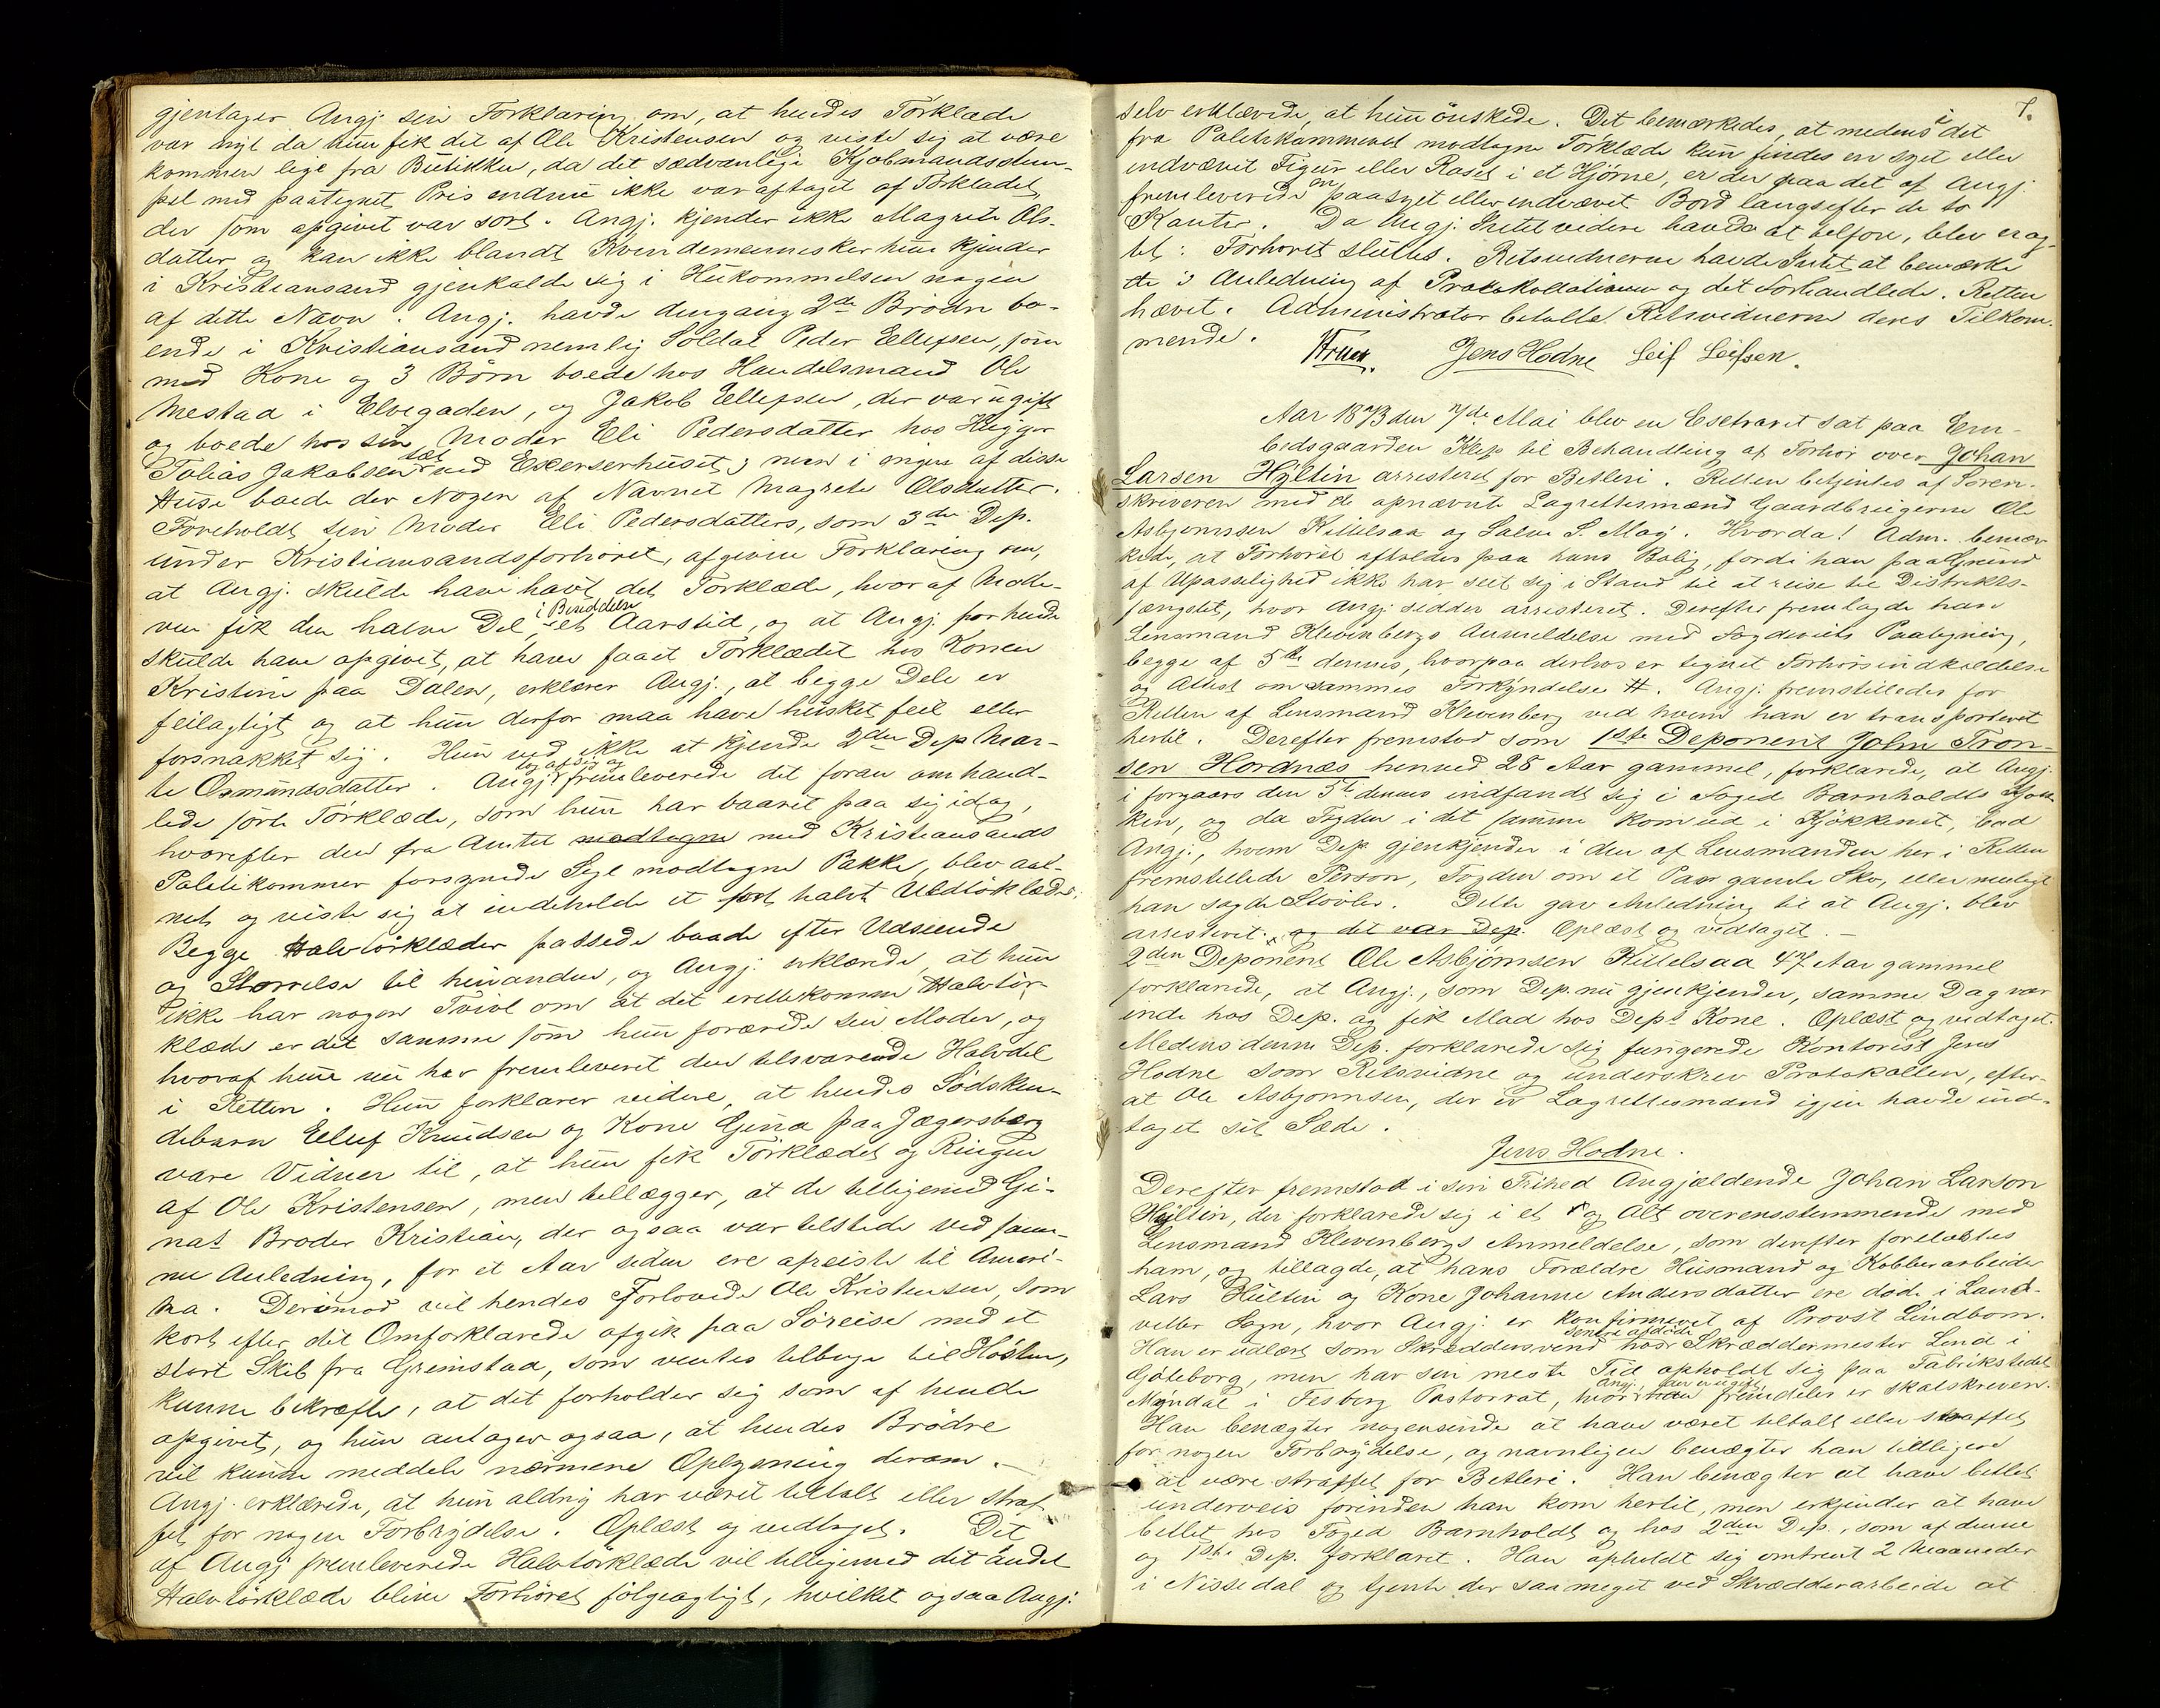 gjentager Angj. sin Forklaring om, at hendes Tørklæde
var nyt da hun fik det af Ole Kristensen og viste sig at være
kommen lige fra Butikken, da det sædvanlige Kjøbmandsstem-
pel med paategnet Pris endnu ikke var aftaget af Tørklædet,
der som opgivet var sort. Angj. kjender ikke Magrete Ols-
datter og kan ikke blandt Kvindemennesker hun kjender
i Kristiansand gjenkalde sig i Hukommelsen nogen
af dette Navn. Angj. havde dengang 2de Brødre bo-
ende i Kristiansand nemlig Soldat Peder Ellefsen, som
med Kone og 3 Børn boede hos Handelsmand Ole
Mestad i Elvegaden, og Jakob Ellefsen, der var ugift
og boede hos sin Moder Eli Pedersdatter hos Hugger
Tobias Jakobsen tæt ved Exerserhuset; men i ingen af disse
Huse boede der Nogen af Navnet Magrete Olsdatter.
Foreholdt sin Moder Eli Pedersdatters, som 3die Dep.
under Kristiansandsforhøret, afgivne Forklaring om,
at Angj. skulde have havt det Tørklæde, hvoraf Mode-
ren fik den halve Del, i Besiddelse et Aarstid, og at Angj. for hende
skulde have opgivet, at have faaet Tørklædet hos Konen
Kristine paa Dalen, erklærer Angj., at begge Dele er
feilagtigt og at hun derfor maa have husket feil eller
forsnakket sig. Hun ved ikke at kjende 2den Dep Mar-
te Osmundsdatter. Angj. tog af sig og fremleverede det foran omhand-
lede sorte Tørklæde, som hun har baaret paa sig idag,
hvorefter den fra Amtet modtagne med Kristiansands
Politikammer forsynede Segl modtagne Pakke, blev aab-
net og viste sig at indeholde et sort halvt Uldtørklæde.
Begge Halvtørklæder passede baade efter Udseende
og Størrelse til hinanden, og Angj. erklærede, at hun
ikke har nogen Tvivl om at det vedkomne Halvtør-
klæde er det samme som hun forærede sin Moder, og
hvoraf hun nu har fremleveret den tilsvarende Halvdel
i Retten. Hun forklarer videre, at hendes Sødsken-
debarn Elluf Knudsen og Kone Gina paa Jægersberg
vare Vidner til, at hun fik Tørklædet og Ringen
af Ole Kristensen, men tillægger, at de tilligemed Gi-
nas Broder Kristian, der ogsaa var tilstede ved sam-
me Anledning, for et Aar siden ere afreiste til Ameri-
ka. Derimod vil hendes Forlovede Ole Kristensen, som
kort efter det Omforklarede afgik paa Søreise med et
stort Skib fra Grimstad, som ventes tilbage til Høsten,
kunne bekræfte, at det forholder sig som af hende
opgivet, og hun antager ogsaa, at hendes Brødre
vil kunne meddele nærmere Oplysning derom.
Angj. erklærede, at hun aldrig har været tiltalt eller straf-
fet for nogen Forbrydelse. Oplæst og vedtaget. Det
af Angj fremleverede Halvtørklæde vil tilligemed det andet
Halvtørklæde blive Forhøret følgeagtigt, hvilket ogsaa Angj.
7.
selv erklærede, at hun ønskede. Det bemærkedes, at medens i det
fra Politikammeret modtagne Tørklæde kun findes en syet eller
indvævet Figur eller Roset i et Hjørne, er der paa det af Angj.
fremleverede en paasyet eller indvævet Bord langsefter de to
Kanter. Da Angj. Intet videre havde at tilføre, blev erag-
tet: Forhøret sluttes. Retsvidnerne havde Intet at bemærke
i Anledning af Protokollationen og det Forhandlede. Retten
hævet. Administrator betalte Retsvidnerne deres Tilkom-
mende.
Jens Hodne Leif Leifsen.
Aar 1873 den 7de Mai blev en Extraret sat paa Em-
bedsgaarden Klep til Behandling af Forhør over Johan
Larsen Hyltin arresteret for Betleri. Retten betjentes af Soren-
skriveren med de opnævnte Lagrettesmænd Gaardbrugerne Ole
Asbjørnsen Kittelsaa og Salve S. Moy. Hvorda! Adm. bemær-
kede, at Forhøret afholdes paa hans Bolig, fordi han paa Grund
af Upasselighed ikke har seet sig i Stand til at reise til Distrikts-
fængslet, hvor Angj sidder arresteret. Derefter fremlagde han
Lensmand Klevenbergs Anmeldelse med Fogderiets Paategning,
begge af 5te dennes, hvorpaa derhos er tegnet Forhørsindkaldelse
og Attest om sammes Forkyndelse #. Angj. fremstilledes for
Retten af Lensmand Klevenberg ved hvem han er transporteret
hertil. Derefter fremstod som 1ste Deponent John Tron-
sen Hordnæs henved 28 Aar gammel, forklarede, at Angj.
i forgaars den 5te dennes indfandt sig i Foged Barnholdts Kjøk-
ken, og da Fogden i det samme kom ud i Kjøkkenet, bad
Angj., hvem Dep gjenkjender i den af Lensmanden her i Retten
fremstillede Person, Fogden om et Par gamle Sko, eller muligt
han sagde Støvler. Dette gav Anledning til at Angj. blev
arresteret. og det var Dep. Oplæst og vedtaget. —
2den Deponent Ole Asbjørnsen Kittelsaa 47 Aar gammel
forklarede, at Angj., som Dep. nu gjenkjender, samme Dag var
inde hos Dep. og fik Mad hos Deps Kone. Oplæst og vedtaget.
Medens denne Dep. forklarede sig fungerede Kontorist Jens
Hodne som Retsvidne og underskrev Protokollen, efter-
at Ole Asbjørnsen, der er Lagrettesmand igjen havde ind-
taget sit Sæde.
Jens Hodne.
Derefter fremstod i sin Frihed Angjældende Johan Larson
Hyltin, der forklarede sig i et og Alt overensstemmende med
Lensmand Klevenbergs Anmeldelse, som derefter forelæstes
ham, og tillagde, at hans Forældre Husmand og Kobberarbeider
Lars Hultin og Kone Johanne Andersdatter ere døde i Land-
vetter Sogn, hvor Angj. er konfirmeret af Provst Lindbom.
Han er udlært som Skræddersvend hos senere afdøde Skræddermester Lind i
Gøteborg, men har sin meste Tid opholdt sig paa Fabrikstedet
Myndal i Fesberg Pastorrat, hvor Angj., der er ugift, fremdeles er skatskreven.
Han benægter nogensinde at have været tiltalt eller straffet
for nogen Forbrydelse, og navnligen benægter han tidligere
at være straffet for Betleri. Han benægter at have betlet
underveis forinden han kom hertil, men erkjender at have
betlet hos Foged Barnholdt og hos 2den Dep., som af denne
og 1ste Dep. forklaret. Han opholdt sig omtrent 2 Maaneder
i Nissedal og tjente der saa meget ved Skrædderarbeide at